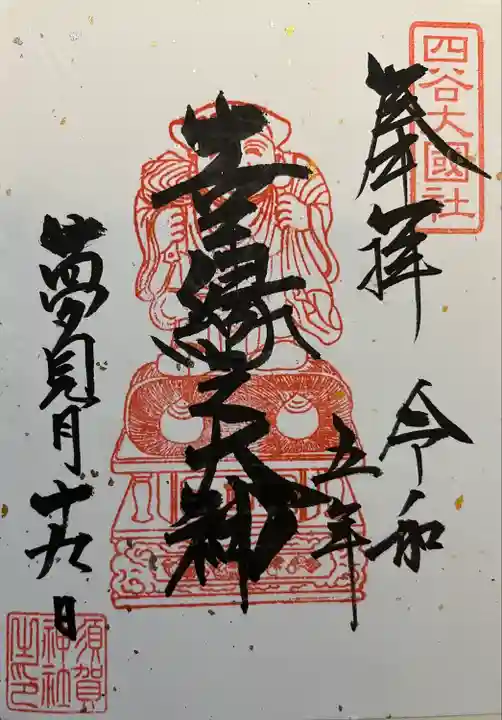 四谷大國社
奉拝
令和
五年
幸縁之大神
夢見月十九日
須賀
神社
之印